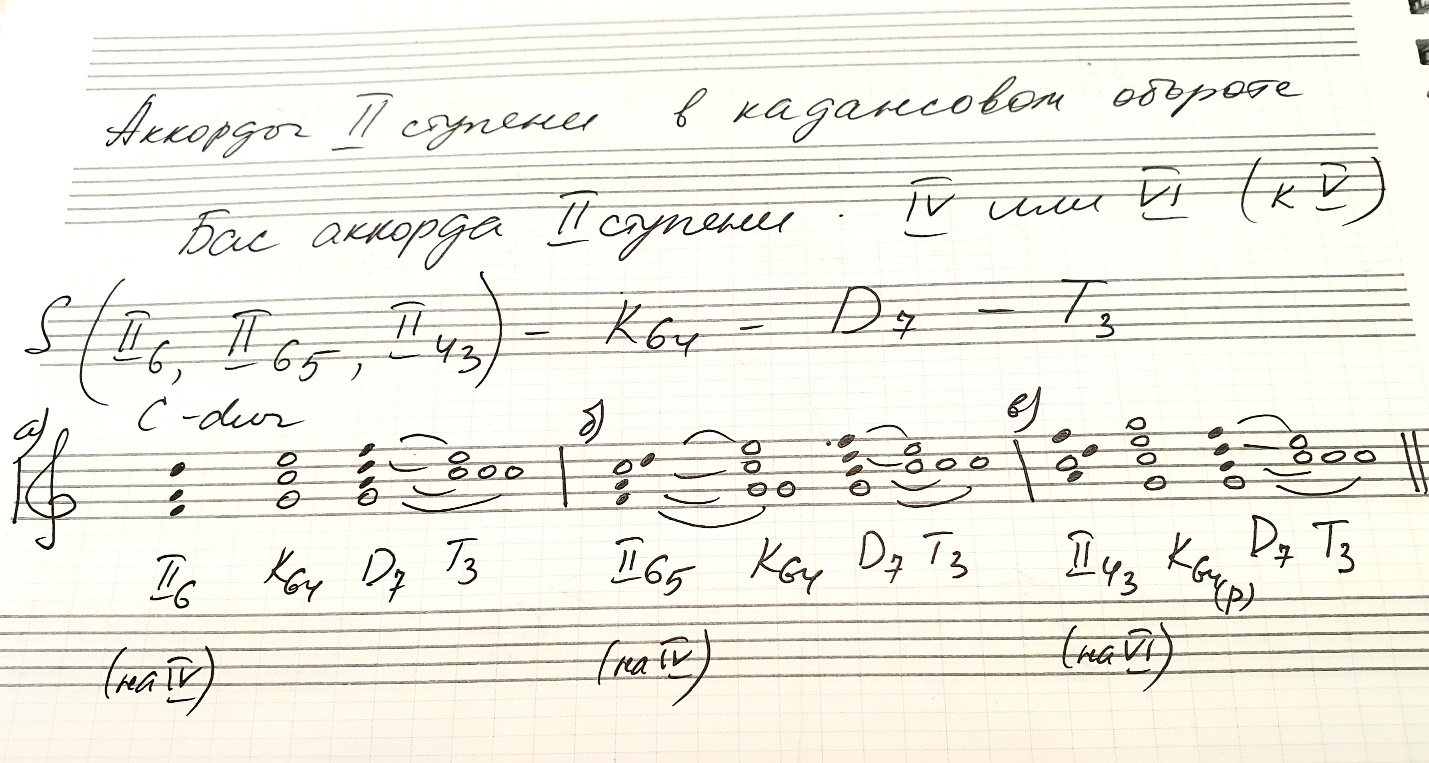 Аккорды II ступени в кадансовом обороте
Бас аккорда II ступени. IV или VI (к V)
S (II6, II65, II43) - K64 - D7 - T3
а) C-dur б) в)
II6 K64 D7 T3 II65 K64 D7 T3 II43 K64(р) D7 T3
(на IV) (на IV) (на VI)